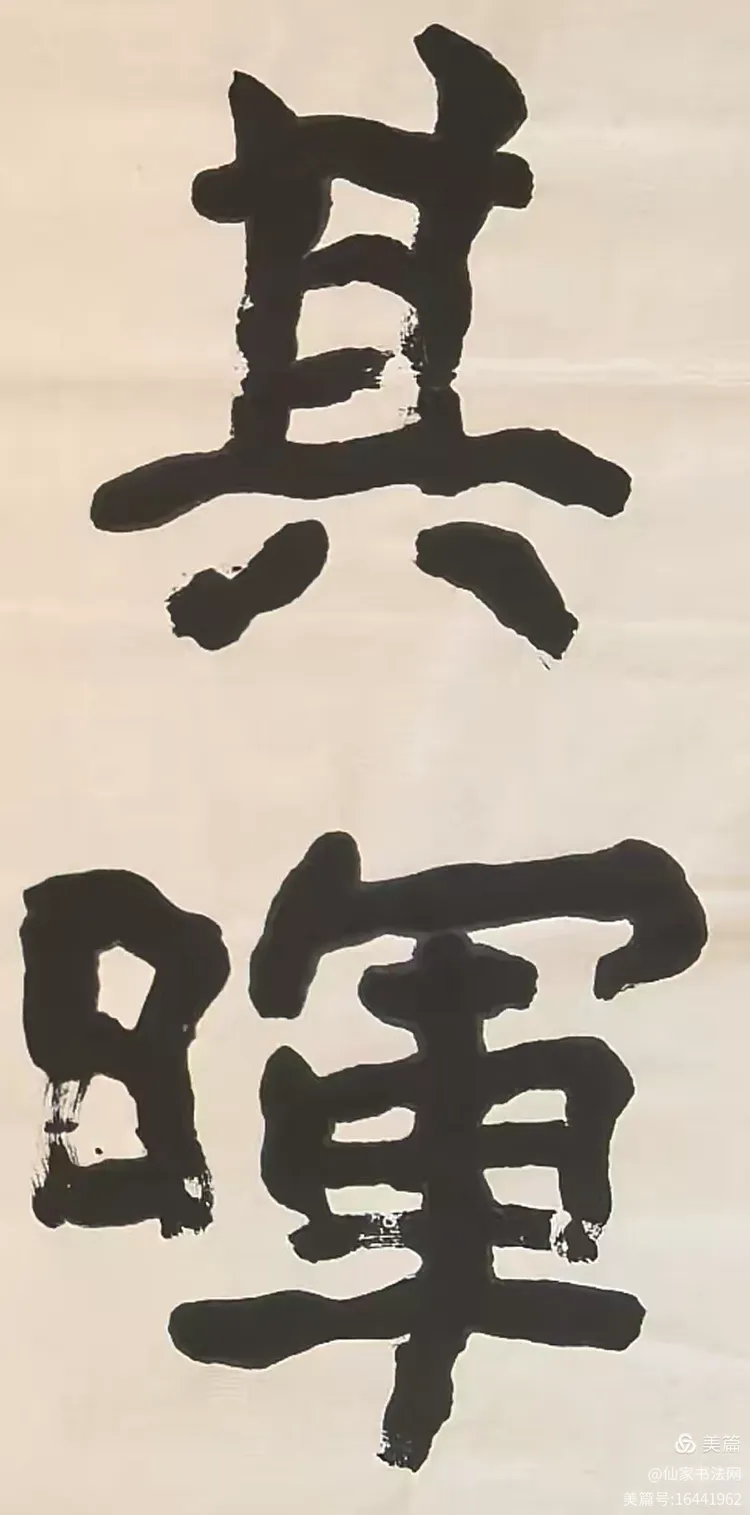 其
暉
美篇
@仙家书法网
美篇号:16441962